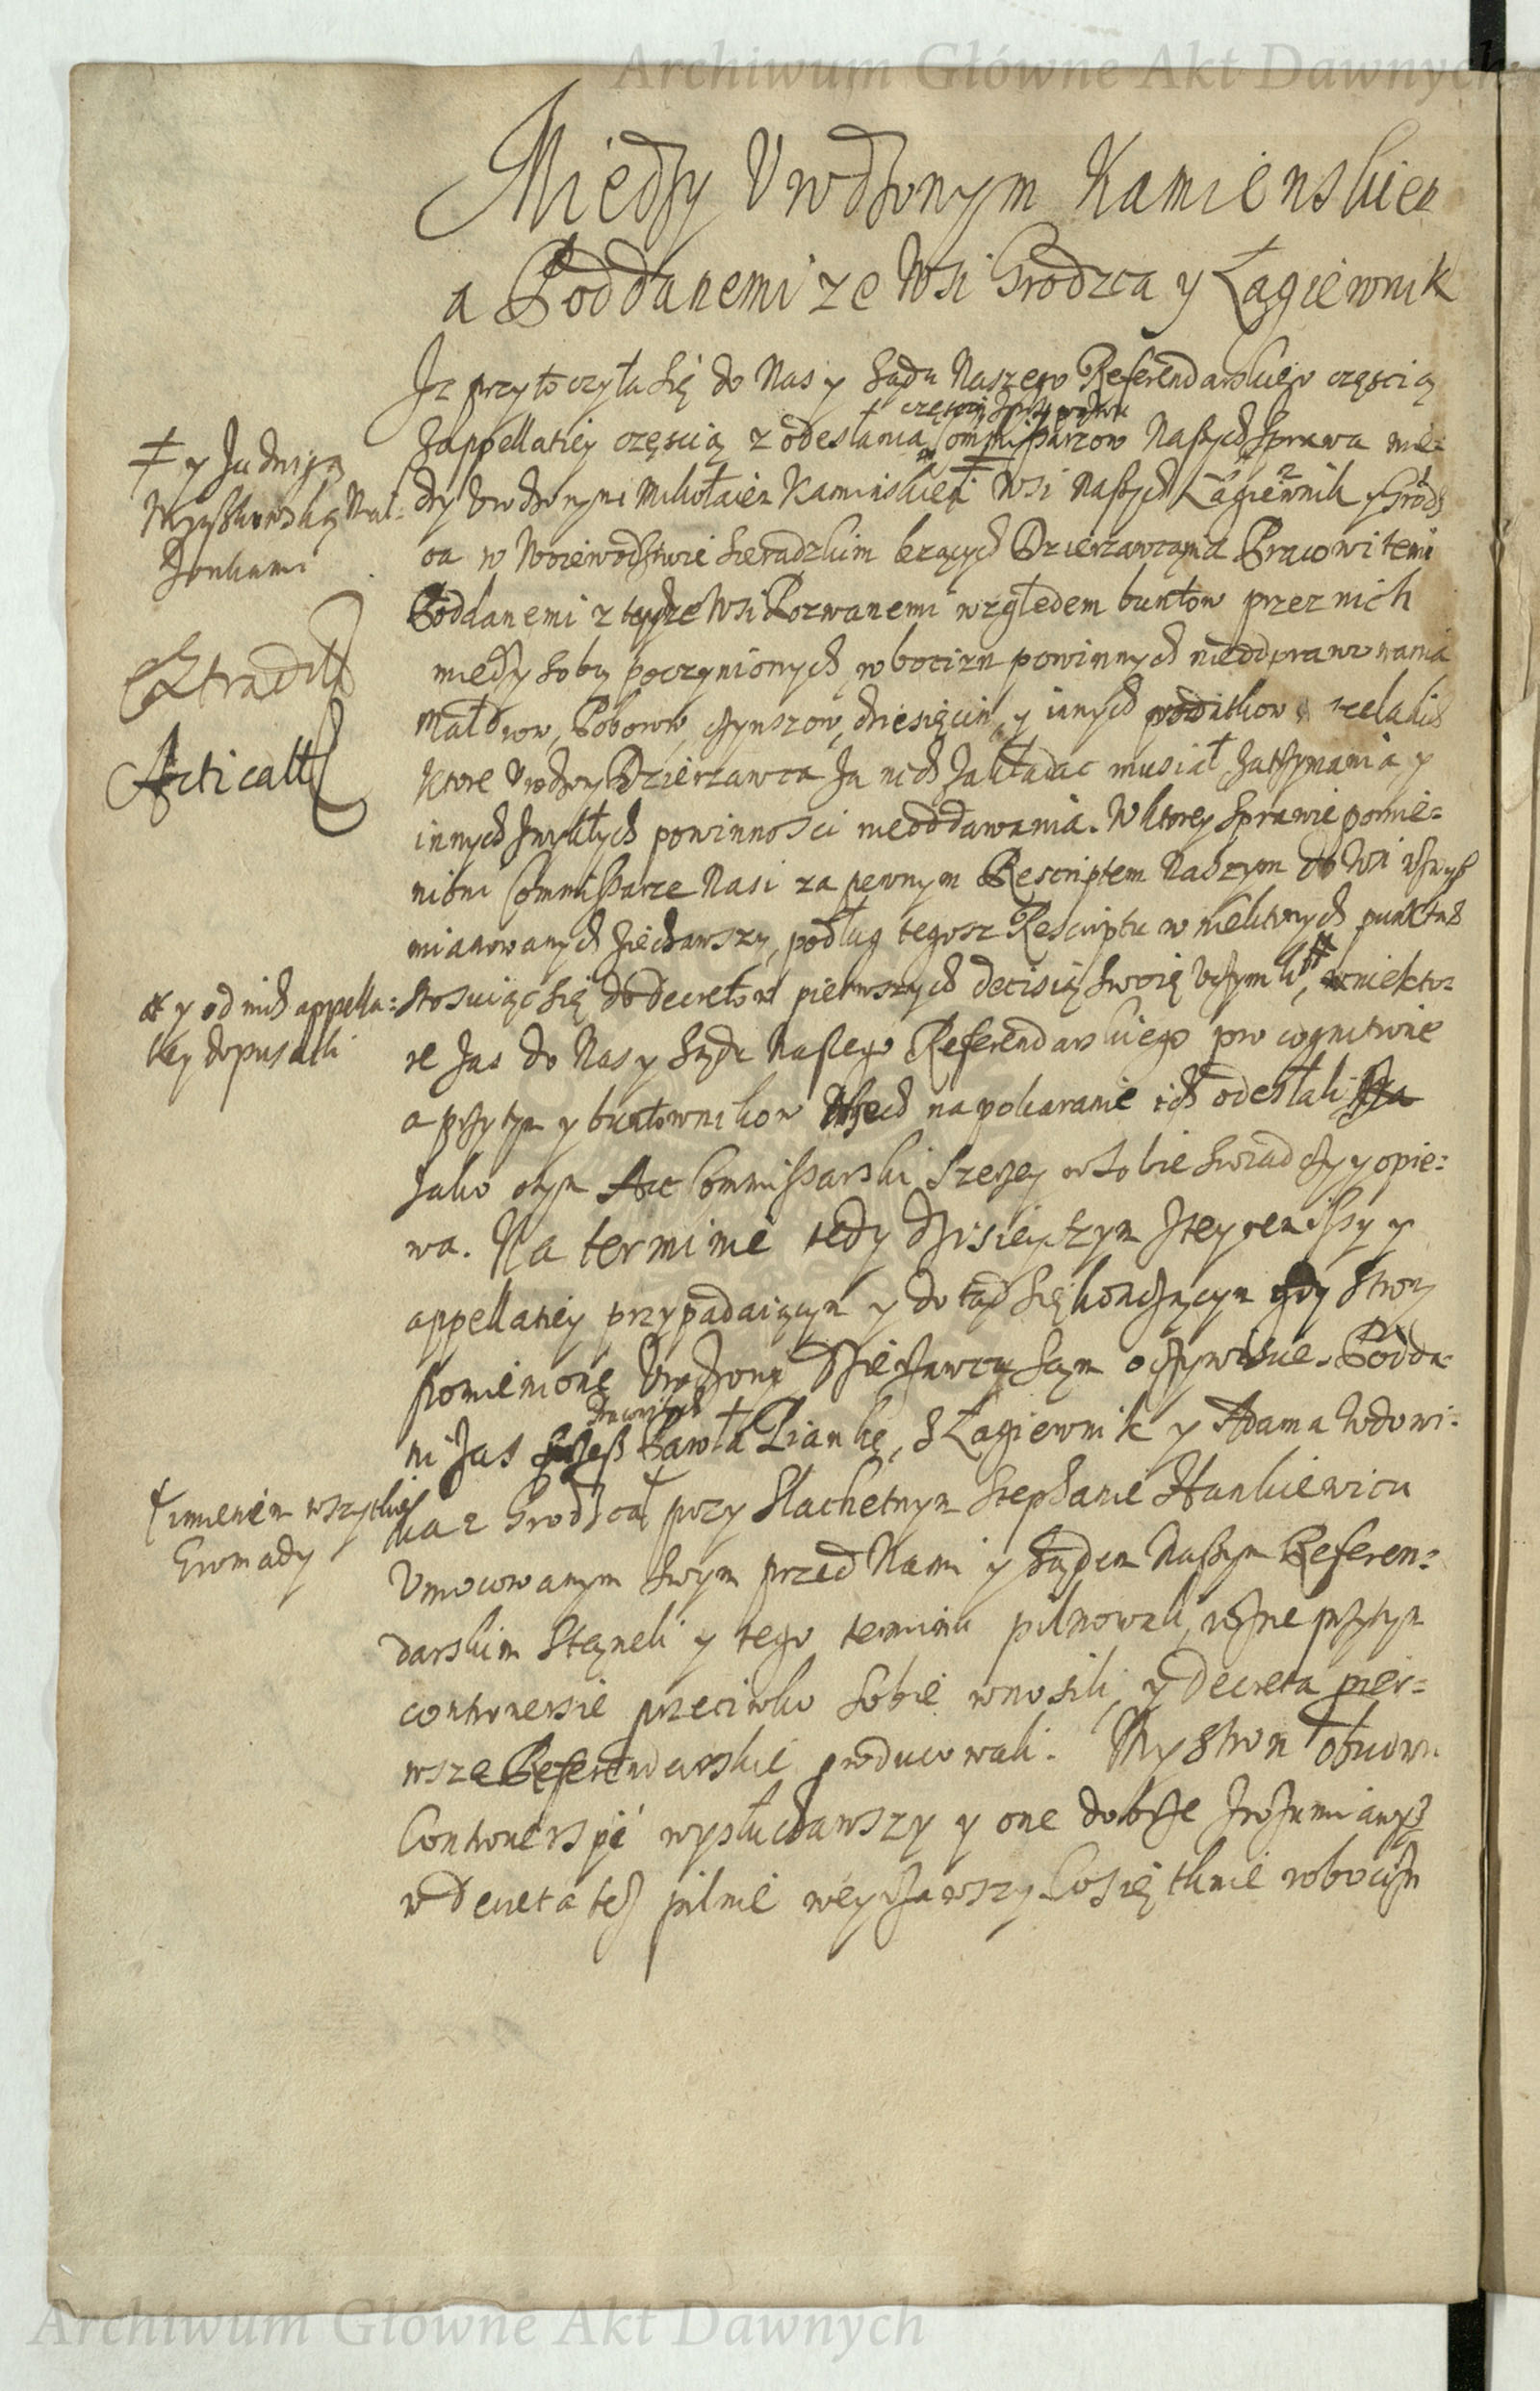 Archiwum Główne Akt Dawnych
Miedzy Urodzonym Kamienskiem
a Poddanemi ze Wsi Grodzca y Łagiewnik
Iz przytoczyła się do Nas y Sądu Naszego Referendarskiego częscią
z appellatiey częscią z odesłania Commissarzow Naszych Sprawa mie-
dzy Urodzonymi Mikołaiem Kaminskiem Wsi Naszych Łagiewnik y Grodz
ca w Woiewodztwie Sieradzkim lezących Dzierzawcami a Pracowitemi
Poddanemi z tychze Wsi Pozwanemi względem buntow przez nich
miedzy sobą poczynionych, robocizn powinnych nieodprawowania
Małdrow, Poborow, czynszow, dziesięcin, y innych podatkow
ktore Urodzony Dzierzawca za nich zakładac musiał, zatrzymania y
innych zwykłych powinnosci nieoddawania. W ktorey Sprawie pomie-
nieni Commissarze Nasi za pewnym Rescriptem Naszym do Wsi
mianowanych ziechawszy, podług tegosz Rescriptu w niektorych punktach
stosuiąc się do decretow pierwszych decisią swoię uczynili, w niekto-
re zas do Nas y Sądu Naszego Referendarskiego pro cognitione
a przytym y buntownikow na pokaranie ich odesłali
jako o tym Act Commissarski szerzey w sobie swiadczy y opie-
wa. Na terminie tedy dzisieyszym z teyze y
appellatiey przypadaiącym y dotąd się kończącym gdy Strony
pomienione Urodzony Dzierzawca sam oczywiscie. Podda-
ni zas przez Pawła Piankę, z Łagiewnik y Adama Wdowi-
ka z Grodzca przy Slachetnym Stephanie Hankiewiczu
Umocowanym swym przed Nami y Sądem Naszym Referen-
darskim stanęli y tego terminu pilnowali, rozne przytym
controversie przeciwko sobie wnosili, y decreta pier-
wsze Referendarskie producowali. My Stron obudwu
Controversyi wysłuchawszy y one dobrze zrozumiawszy
w decreta tesz pilnie weyzrawszy. Co się tknie robocizn
y Jadwigą
Małzonkami
Extradit
Articatt
y od nich appella-
tiey dopuscili
imieniem wszytkiey
Gromady
Archiwum Główne Akt Dawnych